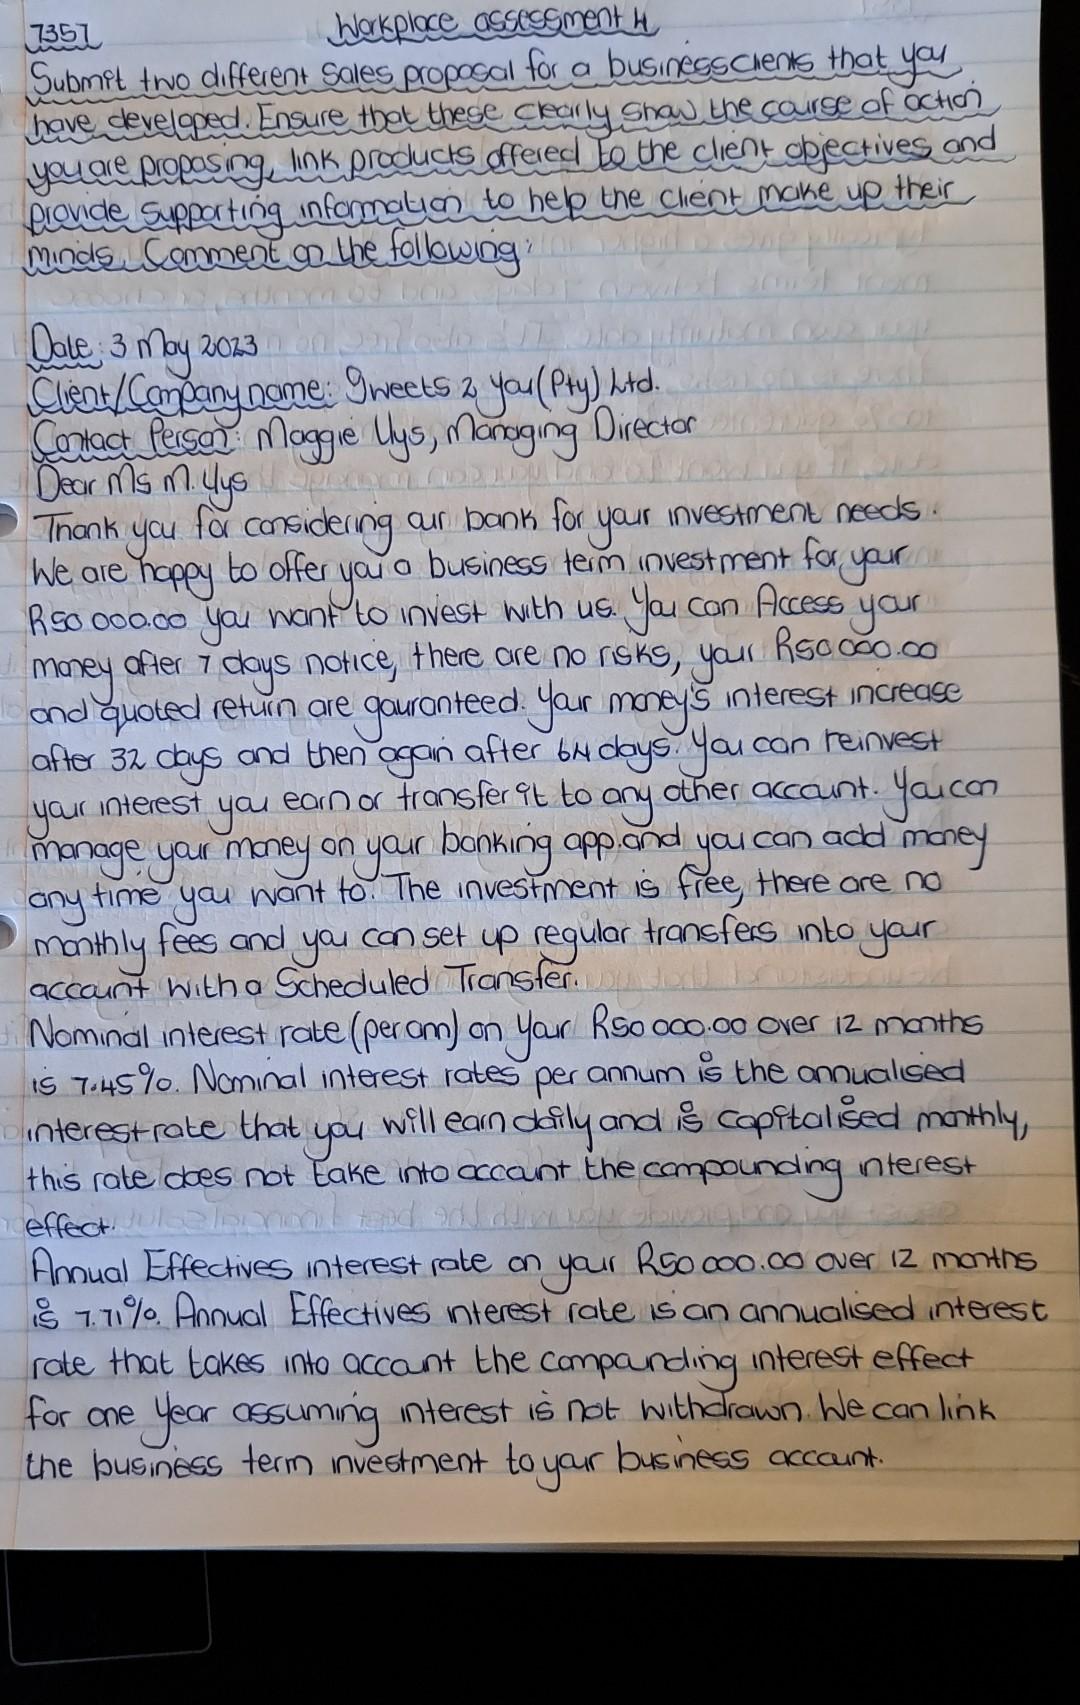 7357 Workplace assessment 4
Submit two different sales proposal for a business clients that you
have developed. Ensure that these clearly show the course of action
you are proposing, link products offered to the client objectives and
provide supporting information to help the client make up their
minds. Comment on the following:
Date: 3 May 2023
Client/Company name: Sweets 2 you (Pty) Ltd.
Contact Person: Maggie Uys, Managing Director
Dear Ms M. Uys
Thank you for considering our bank for your investment needs.
We are happy to offer you a business term investment for your
R50 000.00 you want to invest with us. You can Access your
money after 7 days notice, there are no risks, your R50 000.00
and quoted return are gauranteed. Your money's interest increase
after 32 days and then again after 64 days. You can reinvest
your interest you earn or transfer it to any other account. You can
manage your money on your banking app.and you can add money
any time you want to. The investment is free, there are no
monthly fees and you can set up regular transfers into your
account with a Scheduled Transfer.
Nominal interest rate (per am) on your R50 000.00 over 12 months
is 7.45%. Nominal interest rates per annum is the annualised
interest rate that you will earn daily and is capitalised monthly,
this rate does not take into account the compounding interest
effect.
Annual Effectives interest rate on your R50 000.00 over 12 months
is 7.71%. Annual Effectives interest rate is an annualised interest
rate that takes into account the compounding interest effect
for one year assuming interest is not withdrawn. We can link
the business term investment to your business account.